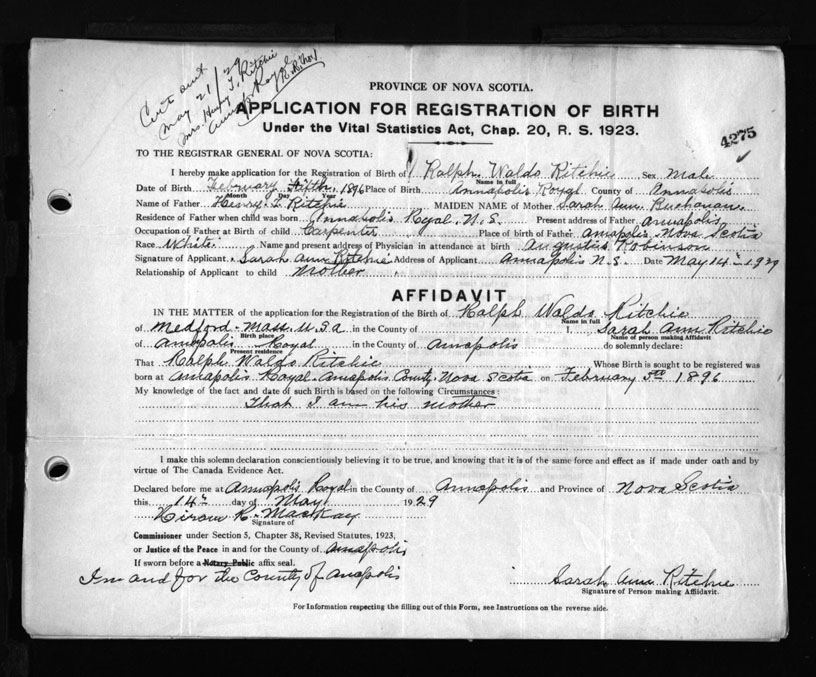 Cert sent
May 21/29
Mrs. Henry T. Ritchie
Annap. Royal
PROVINCE OF NOVA SCOTIA.
APPLICATION FOR REGISTRATION OF BIRTH
Under the Vital Statistics Act, Chap. 20, R. S. 1923.
4275
TO THE REGISTRAR GENERAL OF NOVA SCOTIA:
I hereby make application for the Registration of Birth of Ralph Waldo Ritchie Sex Male
Name in full
Date of Birth February Fifth 1896 Place of Birth Annapolis Royal County of Annapolis
Month Day Year
Name of Father Henry T. Ritchie MAIDEN NAME of Mother Sarah Ann Buchanan
Residence of Father when child was born Annapolis Royal N.S. Present address of Father Annapolis
Occupation of Father at Birth of child Carpenter Place of birth of Father Annapolis, Nova Scotia
Race White Name and present address of Physician in attendance at birth Augustus Robinson
Signature of Applicant Sarah Ann Ritchie Address of Applicant Annapolis N.S. Date May 14th 1929
Relationship of Applicant to child Mother
AFFIDAVIT
IN THE MATTER of the application for the Registration of the Birth of Ralph Waldo Ritchie
Name in full
of Medford Mass. U.S.A in the County of I, Sarah Ann Ritchie
Birth place Name of person making Affidavit
of Annapolis Royal in the County of Annapolis do solemnly declare:
Present residence
That Ralph Waldo Ritchie Whose Birth is sought to be registered was
born at Annapolis Royal Annapolis County, Nova Scotia on February 5th 1896
My knowledge of the fact and date of such Birth is based on the following Circumstances:
That I am his mother
I make this solemn declaration conscientiously believing it to be true, and knowing that it is of the same force and effect as if made under oath and by
virtue of The Canada Evidence Act.
Declared before me at Annapolis Royal in the County of Annapolis and Province of Nova Scotia
this 14th day of May 1929
Hiram K. MacKay
Signature of
Commissioner under Section 5, Chapter 38, Revised Statutes, 1923,
or Justice of the Peace in and for the County of Annapolis
If sworn before a Notary Public affix seal.
In and for the County of Anapolis
Sarah Ann Ritchie
Signature of Person making Affidavit.
For Information respecting the filling out of this Form, see Instructions on the reverse side.